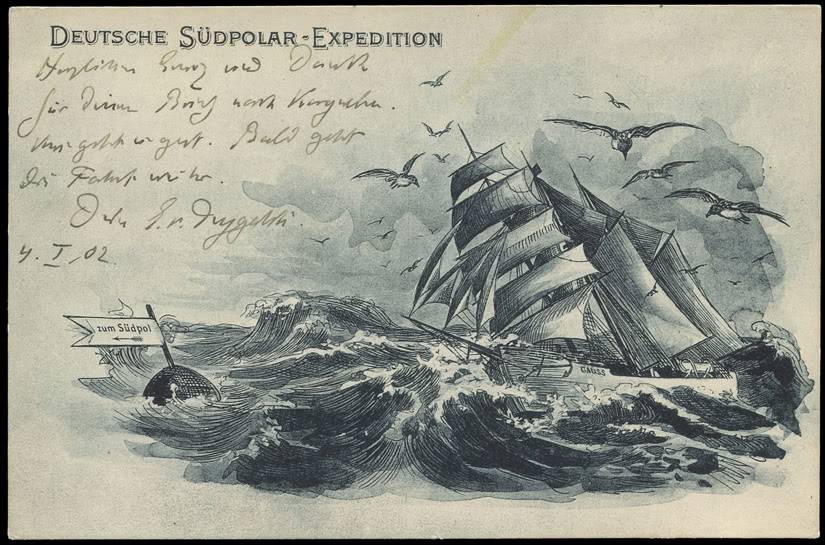 DEUTSCHE SÜDPOLAR-EXPEDITION
Herzlichen Gruss und Dank
für Deinen Brief nach Kerguelen.
Uns geht es gut. Bald geht
die Fahrt weiter.
Dein E. v. Drygalski.
4. I. 02.
zum Südpol
GAUSS